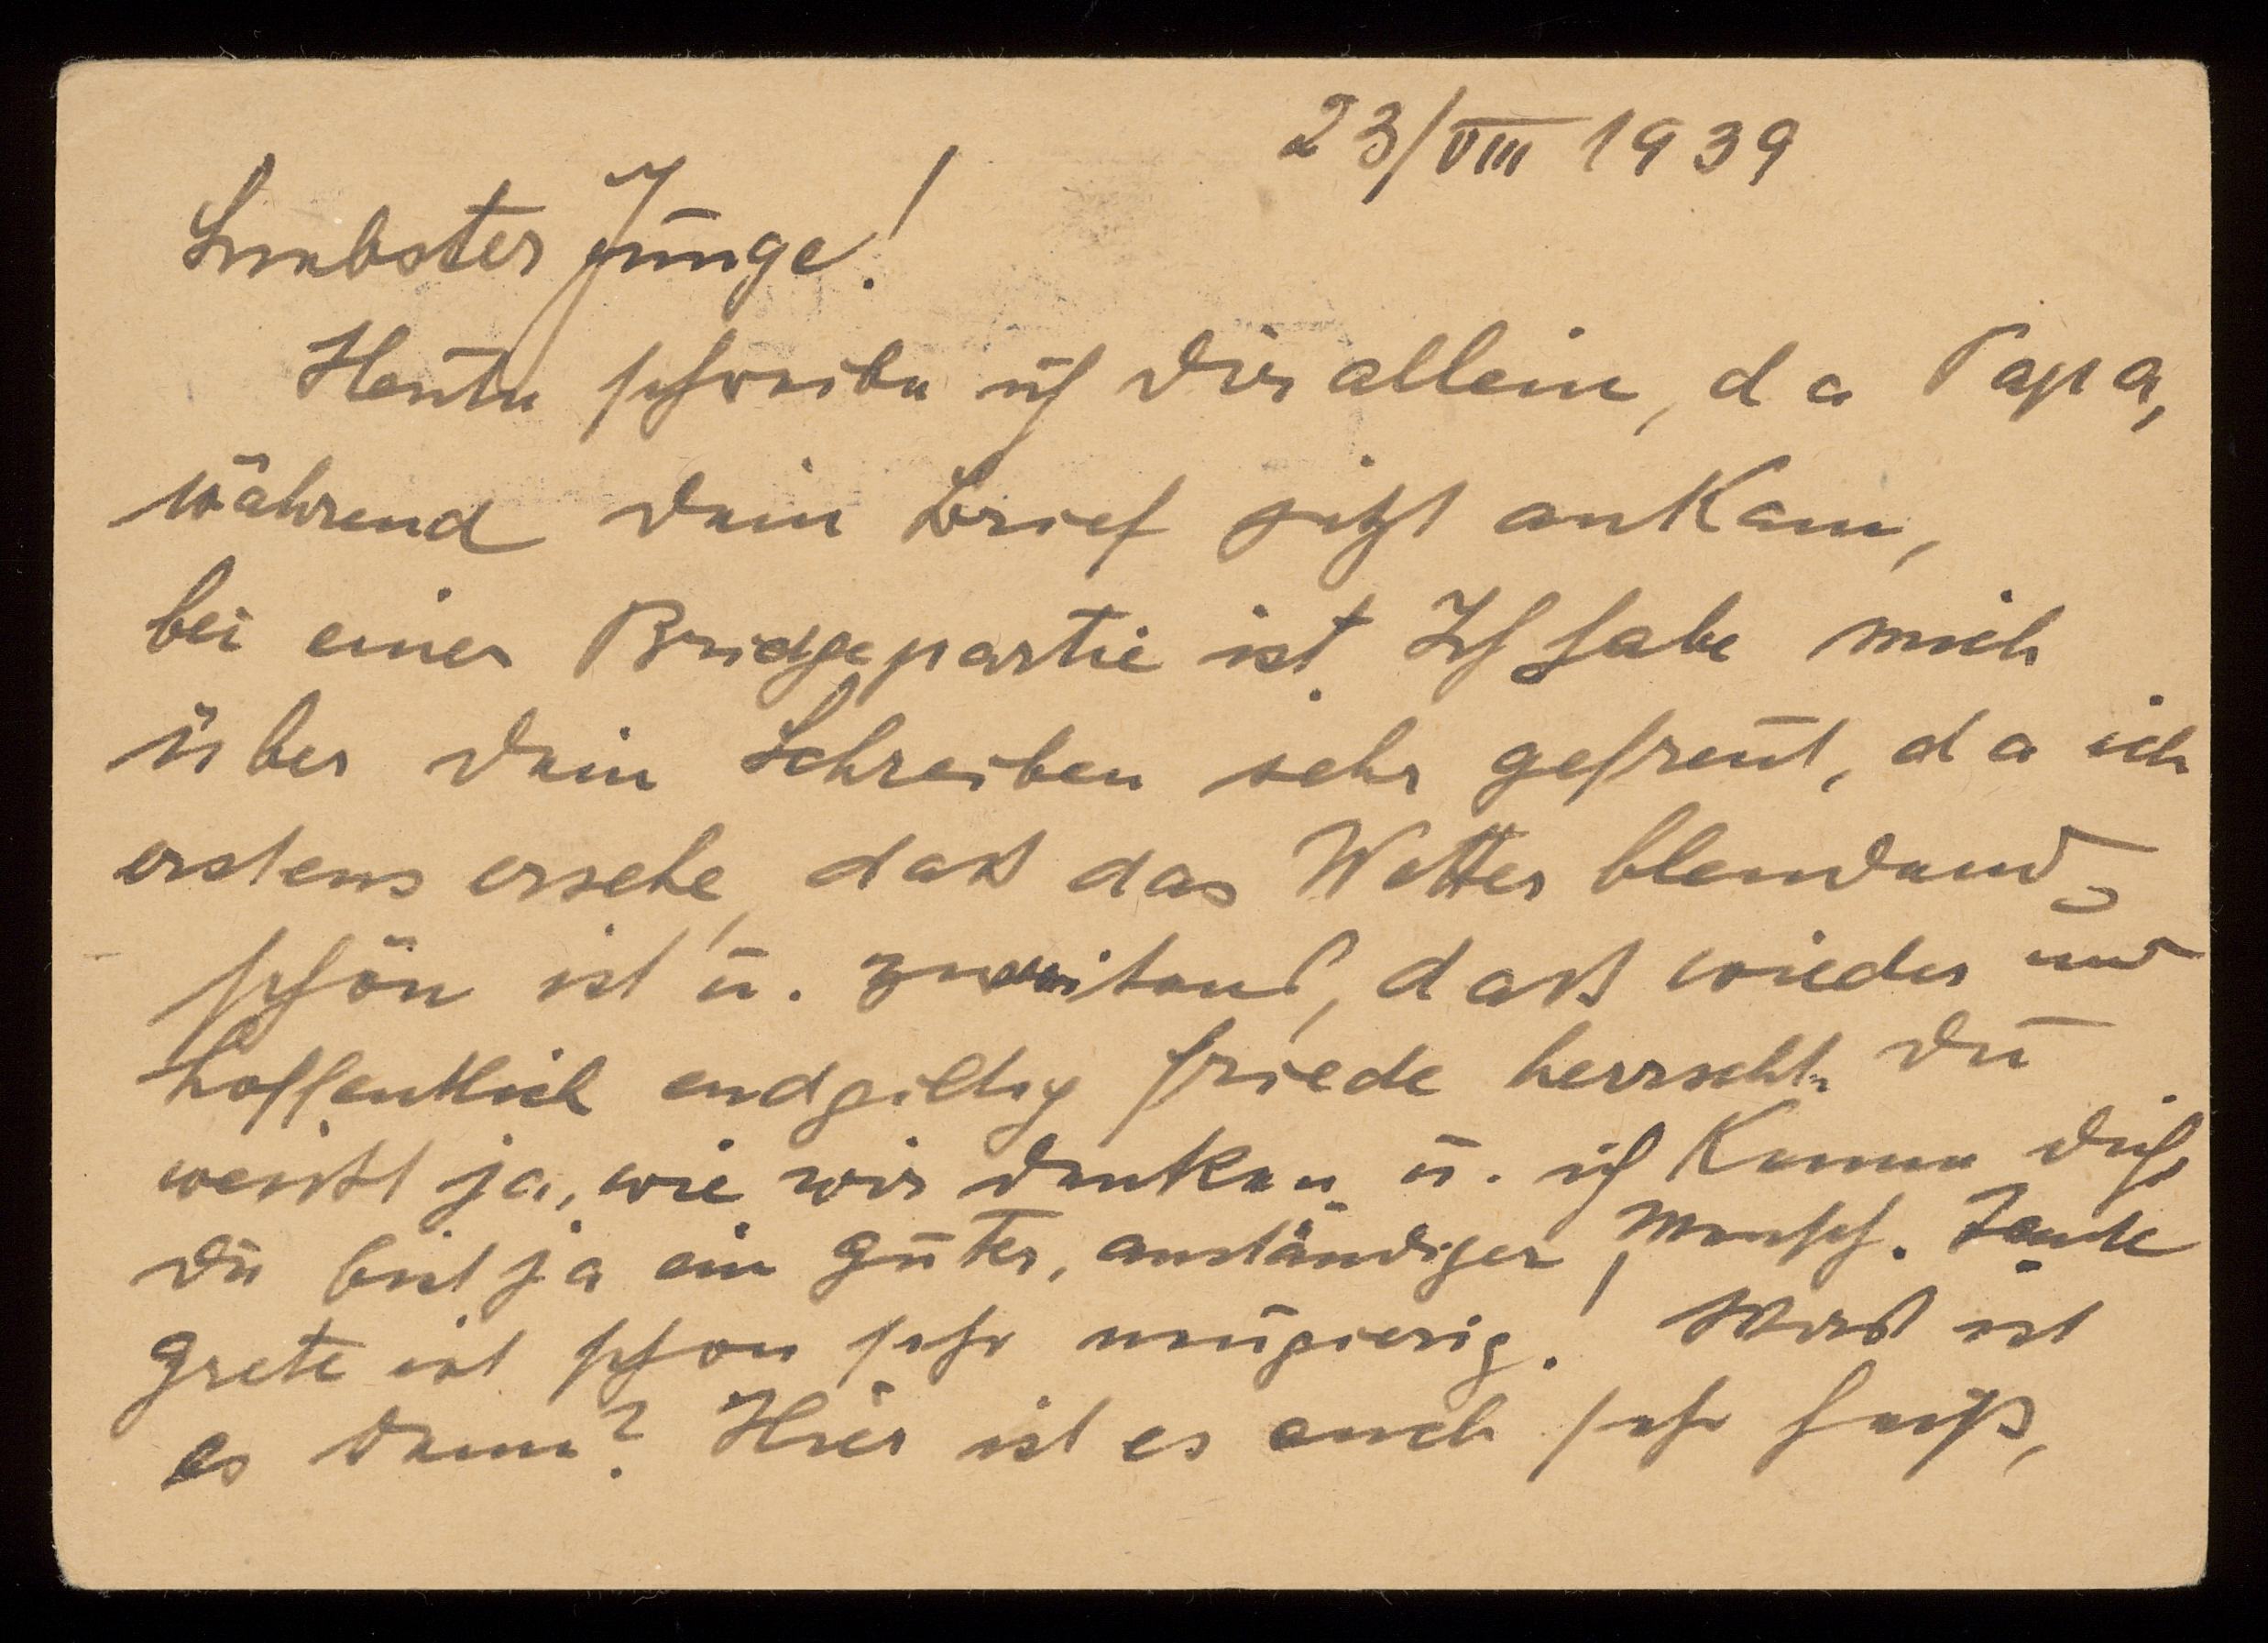 23/VIII 1939
Liebster Junge!
Heute schreibe ich Dir allein, da Papa,
während Dein Brief jetzt ankam,
bei einer Bridgepartie ist. Ich habe mich
über Dein Schreiben sehr gefreut, da ich
erstens ersehe, daß das Wetter blendend
schön ist u. zweitens, daß wieder und
hoffentlich endgiltig Friede herrscht. Du
weißt ja, wie wir denken u. ich kenne Dich,
Du bist ja ein guter, anständiger Mensch. Tante
Grete ist schon sehr neugierig! Was ist
es denn? Hier ist es auch sehr heiß,